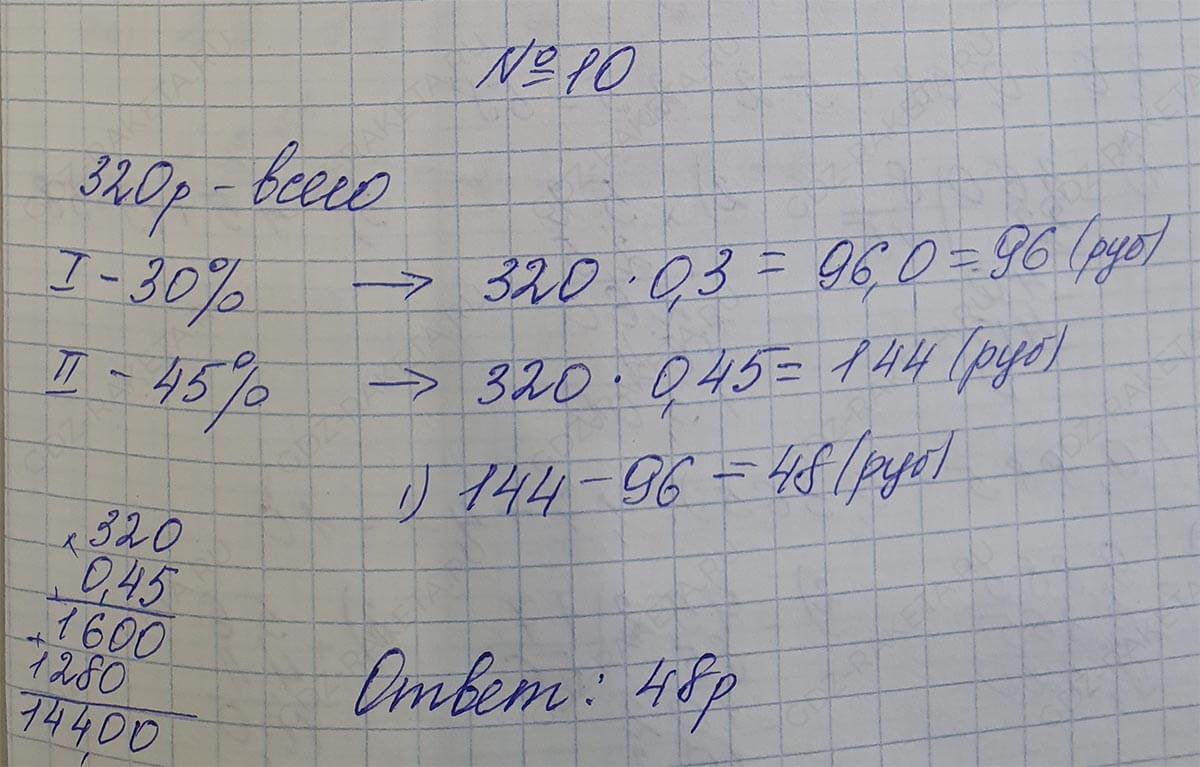 №10
320р - всего
I - 30% → 320 · 0,3 = 96,0 = 96 (руб)
II - 45% → 320 · 0,45 = 144 (руб)
1) 144 - 96 = 48 (руб)
× 320
0,45
+ 1600
1280
144,00
Ответ: 48р
GDZ-RAKETA.RU